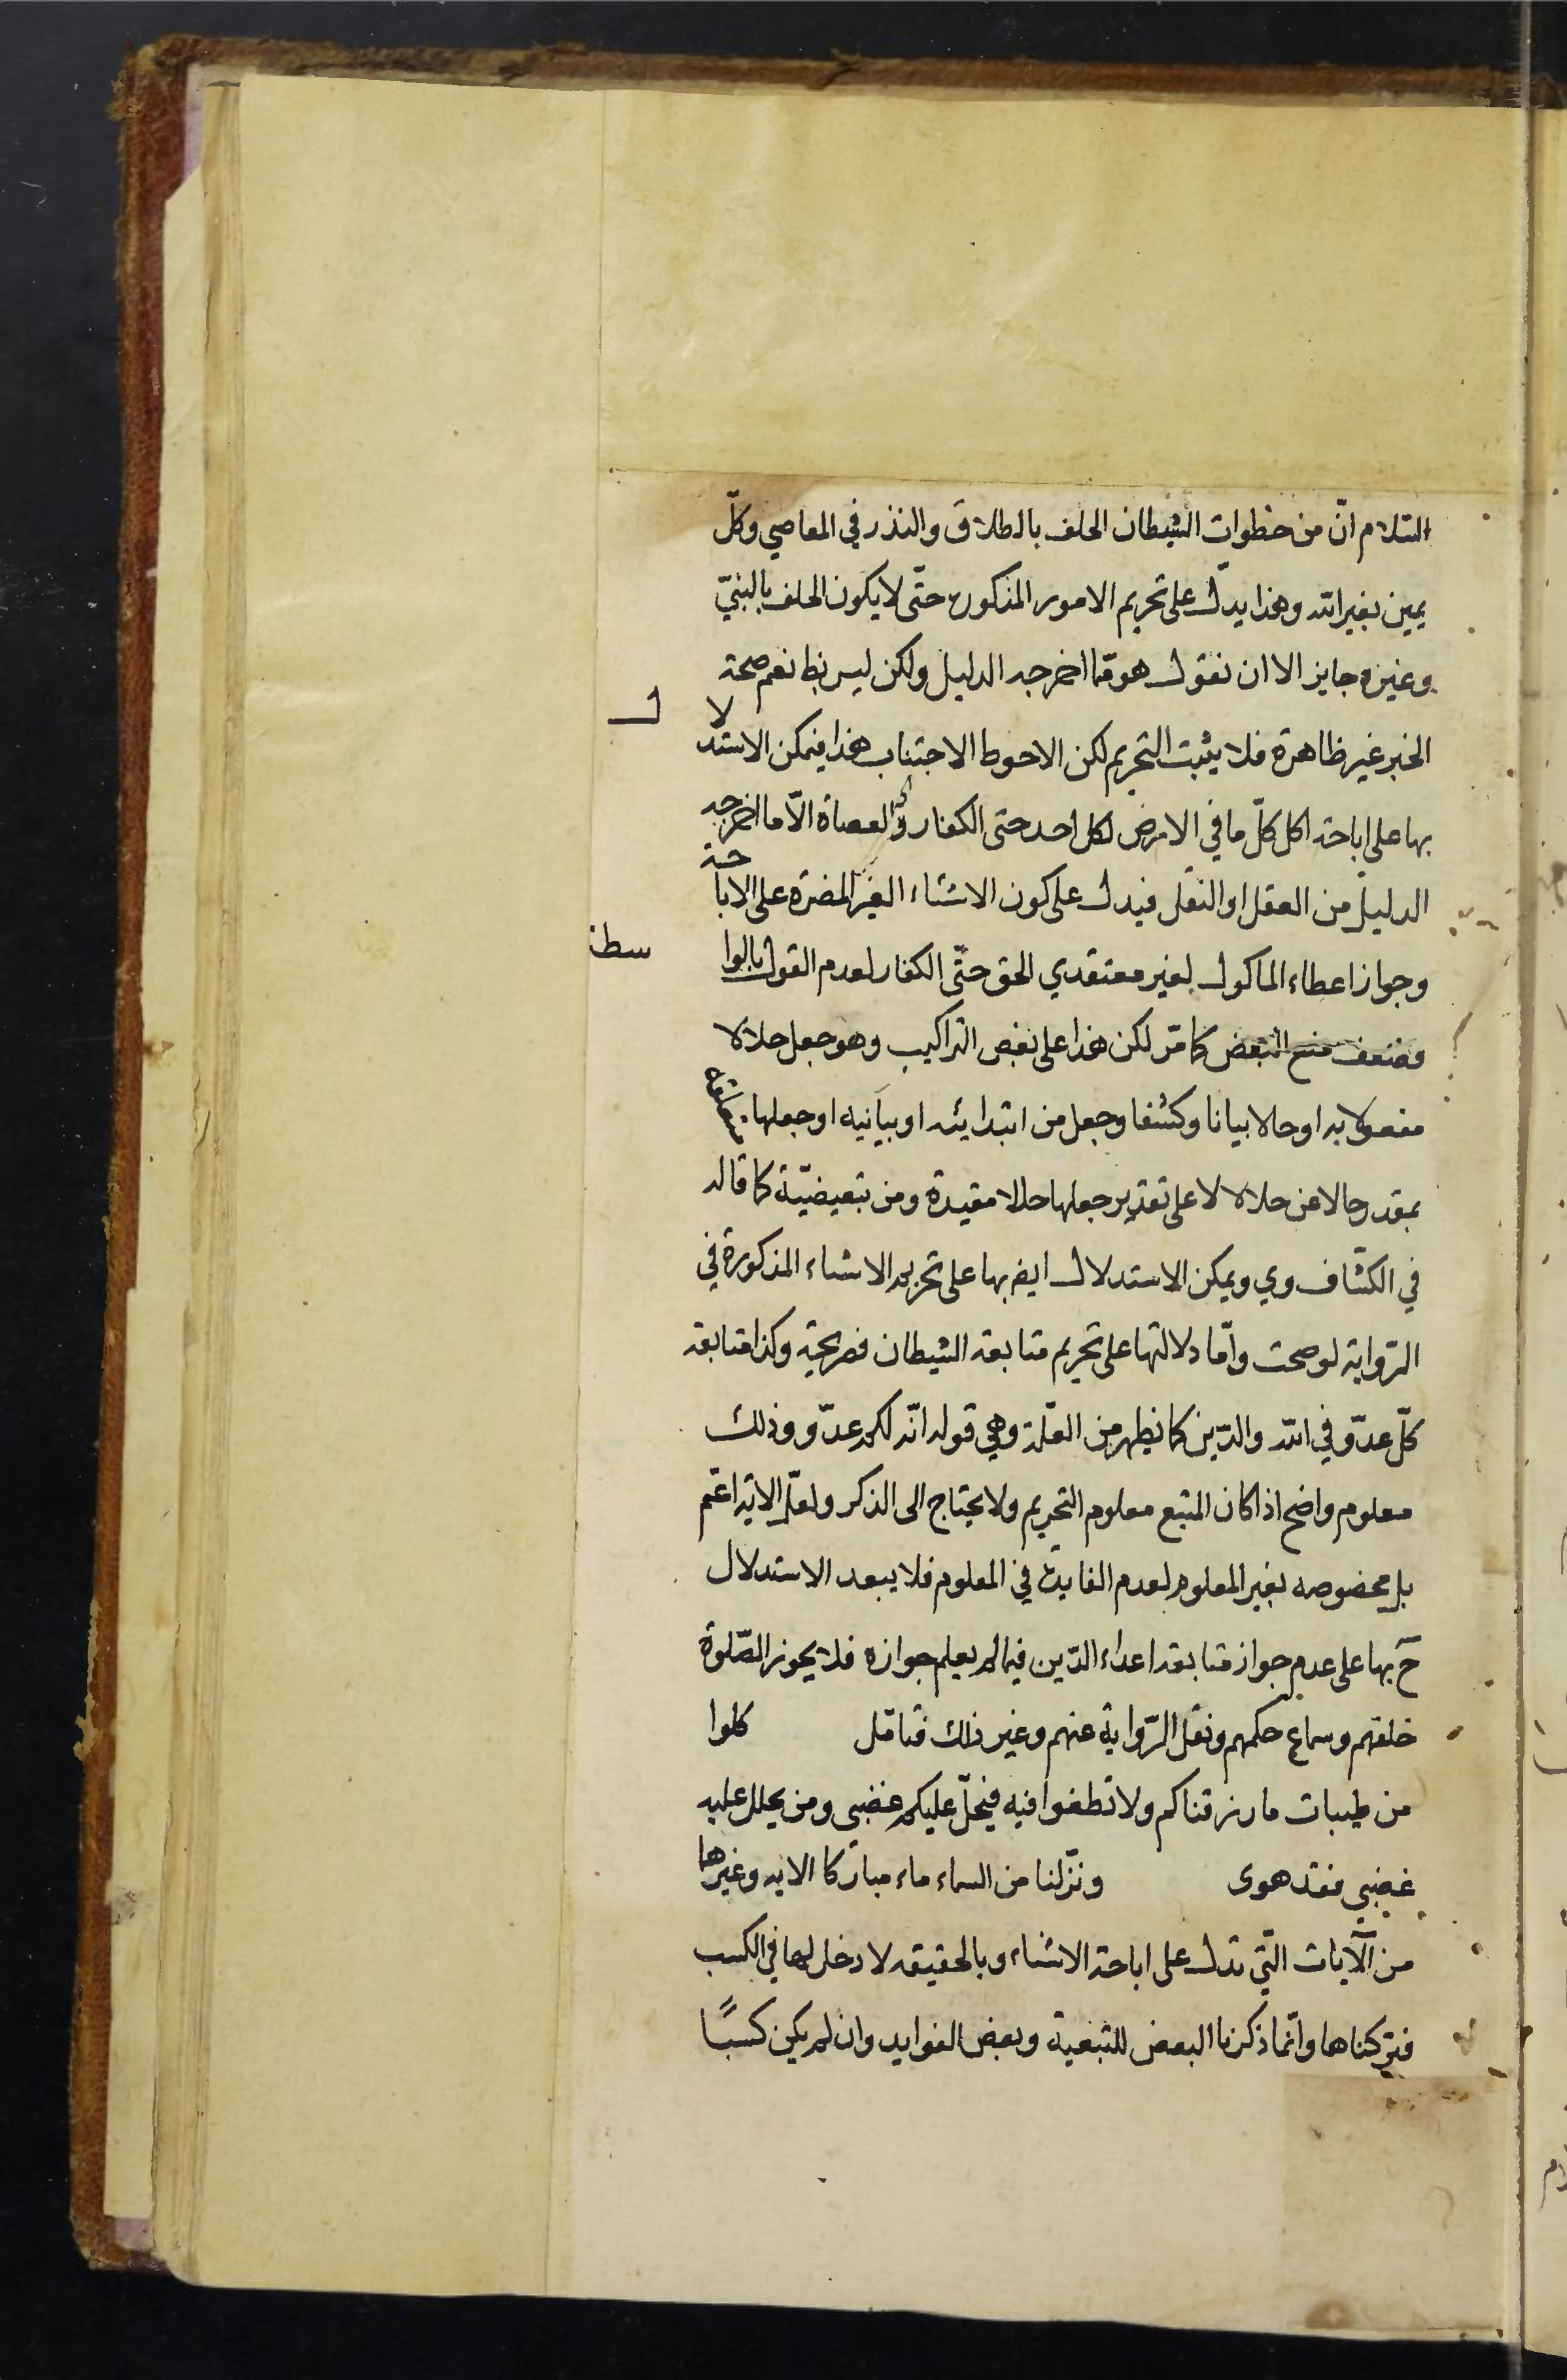 السّلام انّ من خطوات الشيطان الحلف بالطلاق والنذر في المعاصي وكلّ
يمين بغير الله وهذا يدلّ على تحريم الامور المذكوره حتّى لا يكون الحلف بالنبيّ
وغيره جايز الا ان نقول هو ممّا اخرجه الدليل ولكن ليس بط نعم صحة
الخبر غير ظاهرة فلا يثبت التحريم لكن الاحوط الاجتناب هذا فيمكن الاستدلال
بها على اباحة اكل كلّ ما في الارض لكل احد حتى الكفار والعصاة الّا ما اخرجه
الدليل من العقل او النقل فيدل على كون الاشياء الغير المضرة على الاباحة
وجواز اعطاء الماكول لغير معتقدي الحق حتّى الكفار لعدم القول بالواسطة
فضعف منع البعض كما مرّ لكن هذا على بعض التراكيب وهو جعل حلالا
مفعولا به او حالا بيانا وكشفا وجعل من ابتدايئه او بيانيه او جعلها
بمقدر حالا عن حلالا لا على تقدير جعلها حالا مقيدة ومن تبعيضيّة كما قاله
في الكشّاف وي ويمكن الاستدلال ايض بها على تحريم الاشياء المذكورة في
الرّواية لو صحت وامّا دلالتها على تحريم متابعة الشيطان فصريحة وكذا متابعة
كلّ عدّو في الله والدّين كما يظهر من العلّة وهي قوله انّه لكم عدّو وذلك
معلوم واضح اذا كان المتبع معلوم التحريم ولا يحتاج الى الذكر ولعلّ الاية اعمّ
بل مخصوصه بغير المعلوم لعدم الفايدة في المعلوم فلا يبعد الاستدلال
ح بها على عدم جواز متابعة اعداء الدّين فيما لم يعلم جوازه فلا يجوز الصّلوة
خلفهم وسماع حكمهم ونقل الرّواية عنهم وغير ذلك فتامّل كلوا
من طيبات ما رزقناكم ولا تطغوا فيه فيحلّ عليكم غضبى ومن يحلل عليه
غضبي فقد هوى ونزّلنا من السماء ماء مباركا الايه وغيرها
من الآيات الّتي تدل على اباحة الاشياء وبالحقيقه لا دخل لها في الكسب
فتركناها وانّما ذكرنا البعض للتبعية وبعض الفوايد وان لم يكن كسبًا